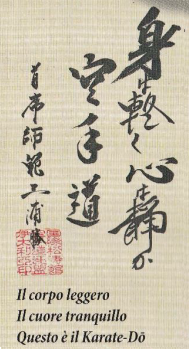 身は軽く心は静か
空手道
首席師範三浦
Il corpo leggero
Il cuore tranquillo
Questo è il Karate-Dō